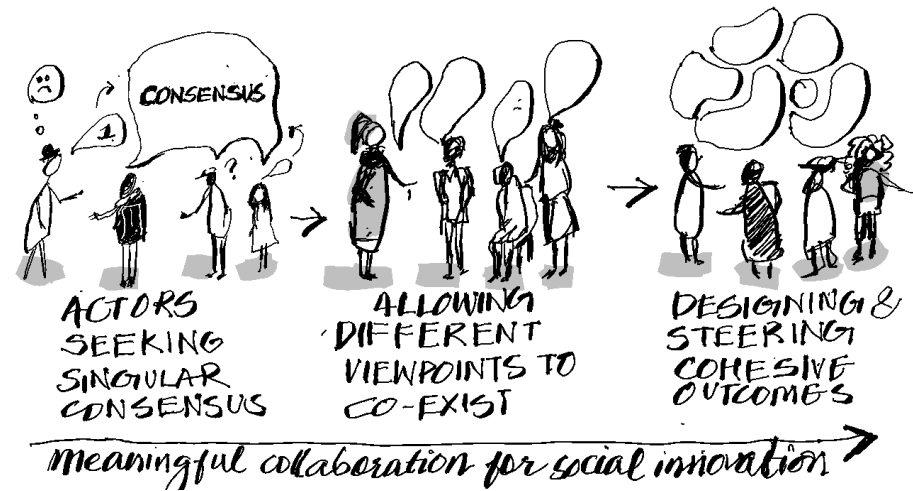 CONSENSUS
1
?
ACTORS
SEEKING
SINGULAR
CONSENSUS
ALLOWING
DIFFERENT
VIEWPOINTS TO
CO-EXIST
DESIGNING &
STEERING
COHESIVE
OUTCOMES
meaningful collaboration for social innovation